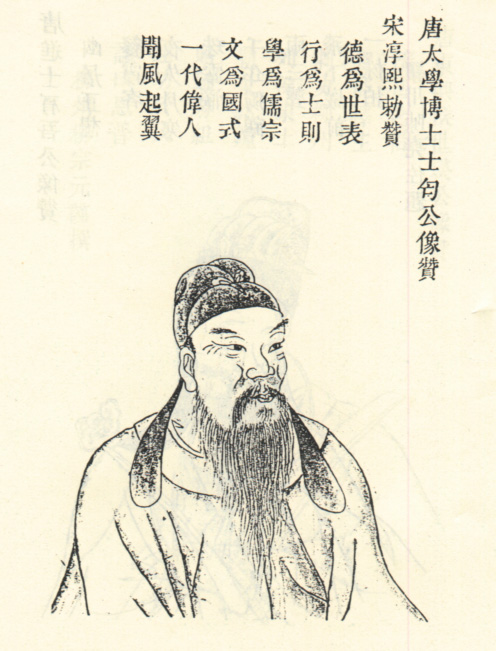 唐太學博士士匄公像贊
宋淳熙勑贊
德為世表
行為士則
學為儒宗
文為國式
一代偉人
聞風起翼